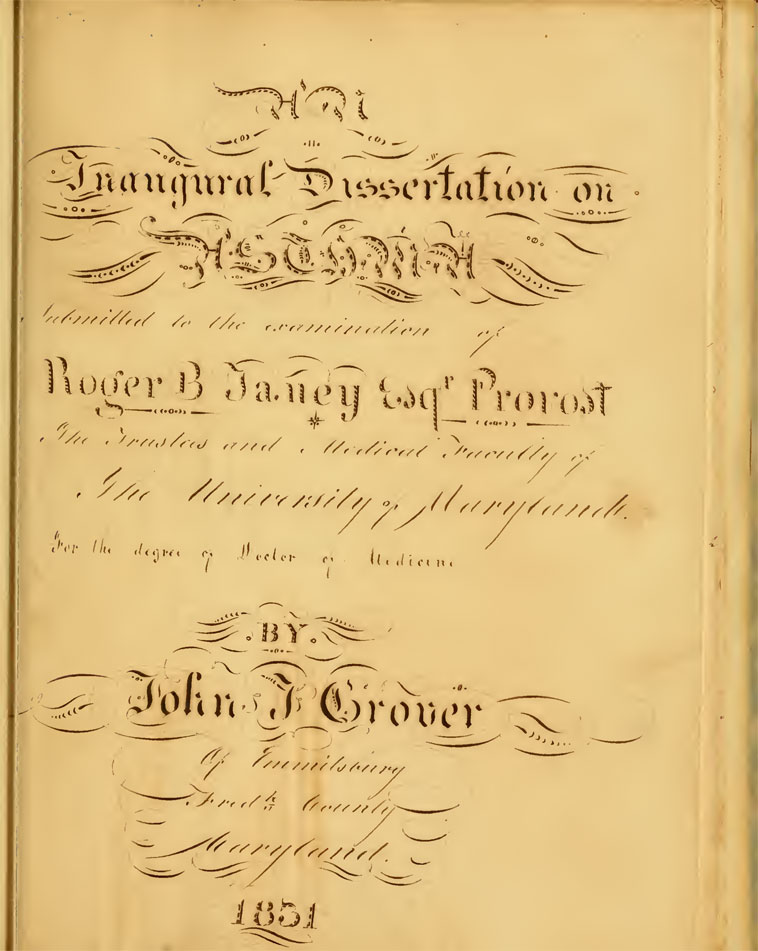 An
Inaugural Dissertation on
ASTHMA
Submitted to the examination of
Roger B Taney Esqr Provost
The Trustees and Medical Faculty of
The University of Maryland.
For the degree of Doctor of Medicine
BY.
John J Grover
Of Emmitsburg
Fredk County
Maryland.
1851